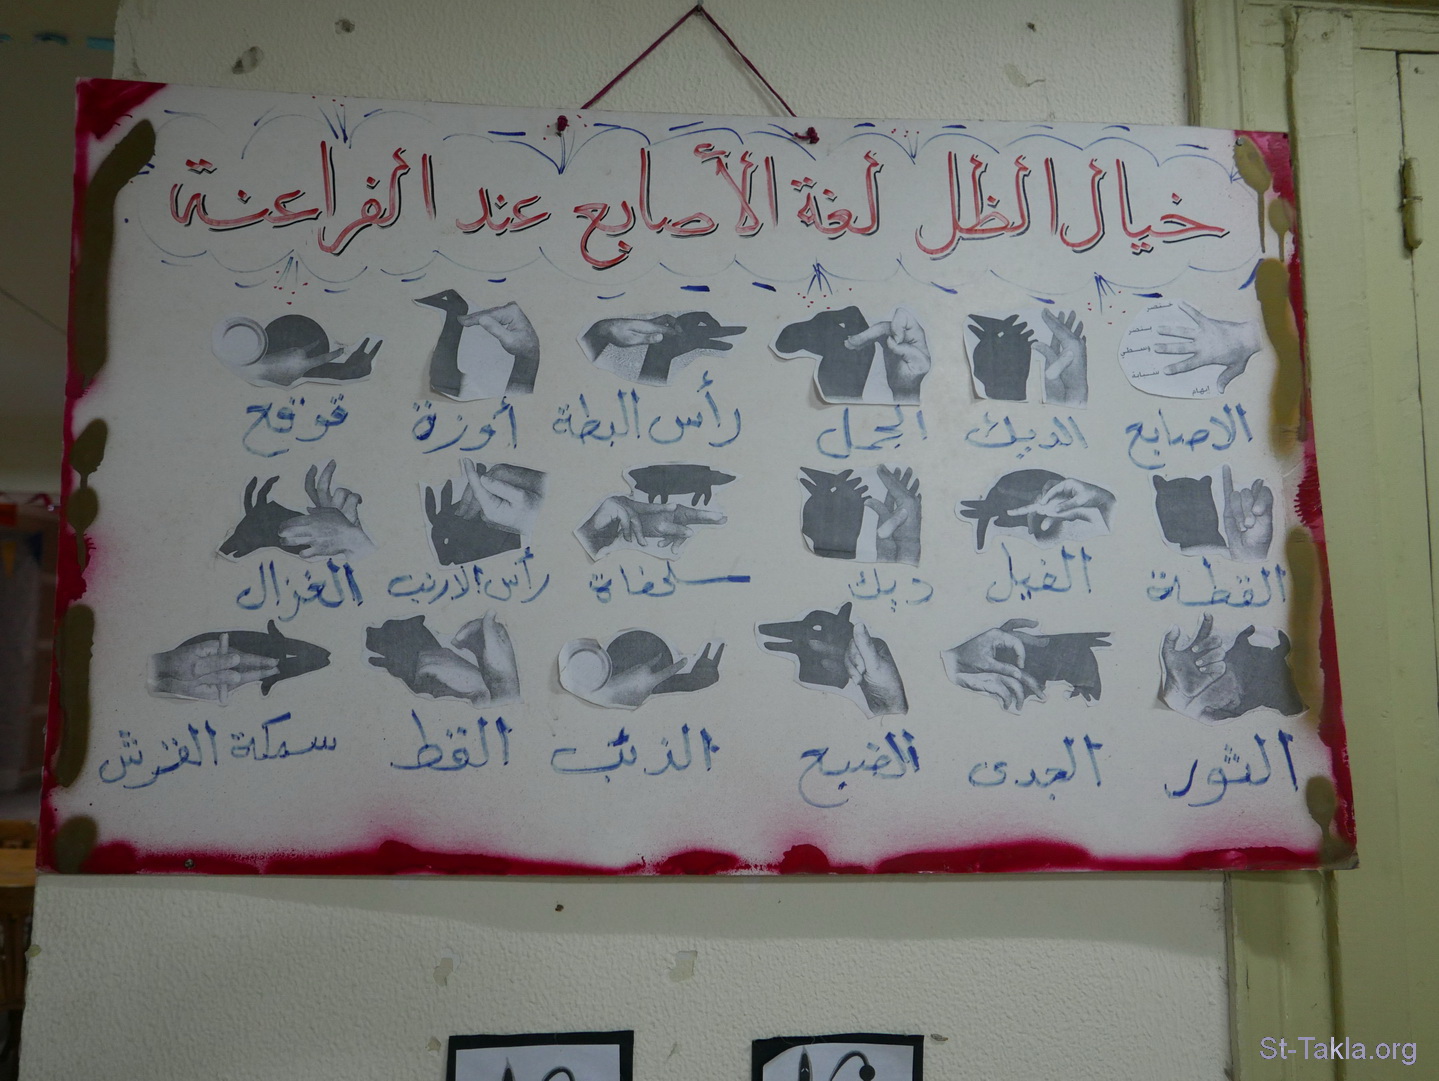 خيال الظل لغة الأصابع عند الفراعنة
خنصر
بنصر
وسطي
سبابة
إبهام
الاصابع الديك الجمل رأس البطة أوزة قوقع
القطة الفيل ديك سلحفاة رأس الارنب الغزال
الثور الجدى الضبع الذئب القط سمكة القرش
St-Takla.org